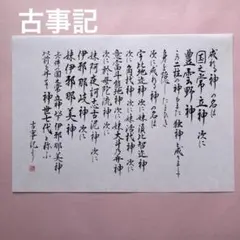 古事記
成れる神の名は
国之常立神 次に
豊雲野神
この二柱の神もまた独神と成りまして
身を隠したまひき
次に成りし神の名は
宇比地邇神 次に妹須比智邇神
次に角杙神 次に妹活杙神
次に意富斗能地神 次に妹大斗乃弁神
次に於母陀流神 次に
妹阿夜訶志古泥神 次に
伊邪那岐神 次に
妹伊邪那美神
上の件の国之常立神以下伊邪那美神
以前を并せて神世七代と称ふ
古事記より